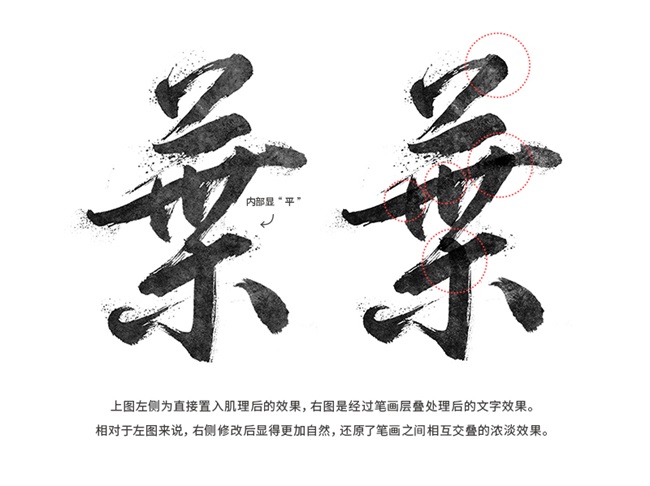 葉 葉
内部显“平”
上图左侧为直接置入肌理后的效果，右图是经过笔画层叠处理后的文字效果。
相对于左图来说，右侧修改后显得更加自然，还原了笔画之间相互交叠的浓淡效果。